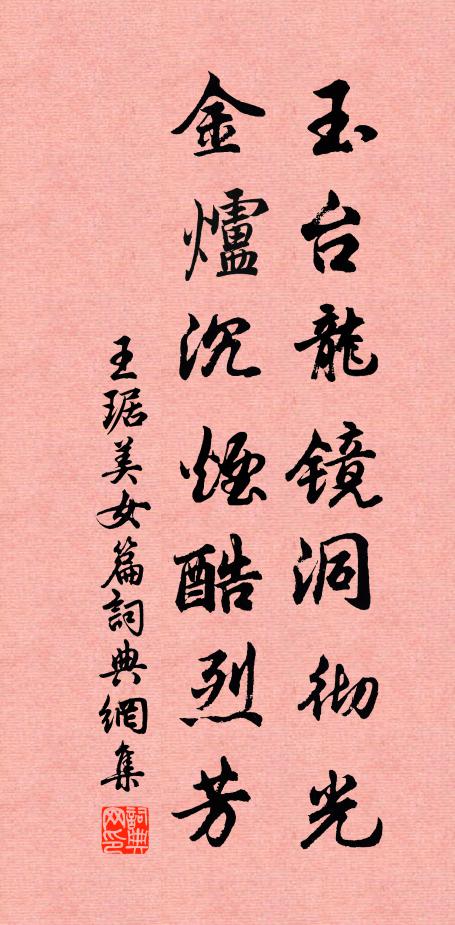 玉台龍镜洞彻光
金爐沉煙酷烈芳
王琚美女篇詞典網集
詞典网印